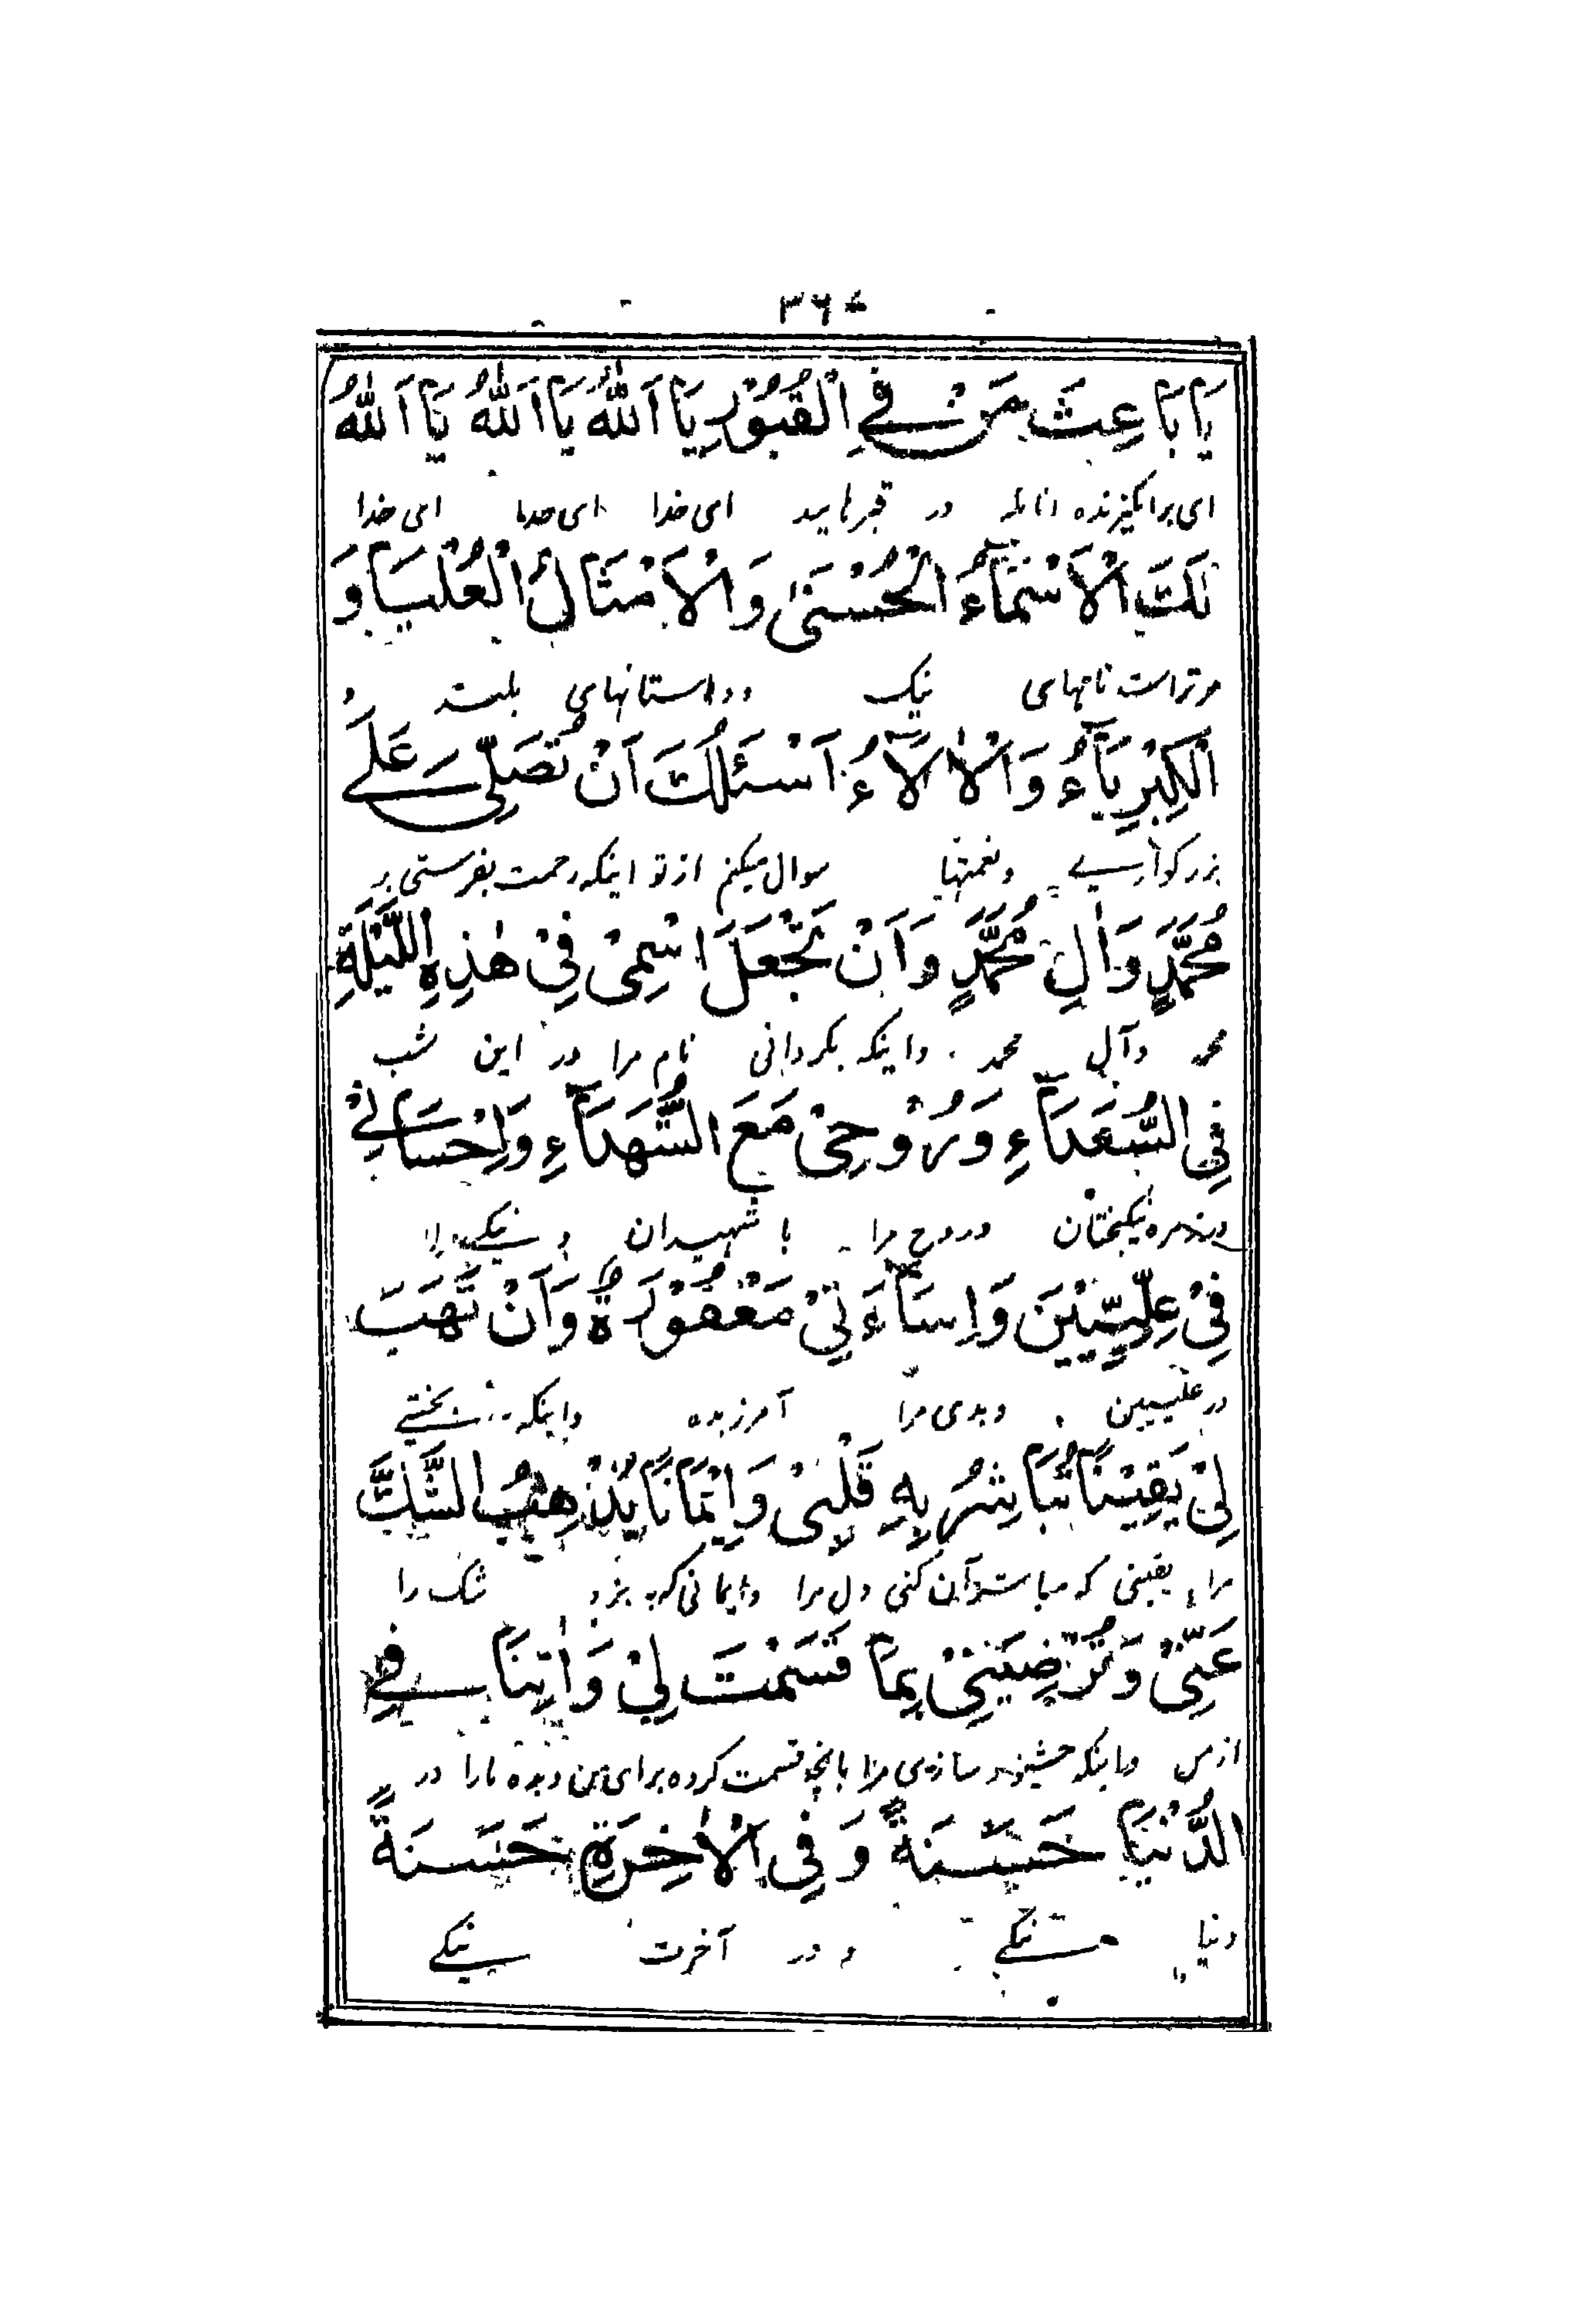 ٣٦٧
يَا بَاعِثَ مَنْ فِي الْقُبُوْرِ يَا اَللّٰهُ يَا اَللّٰهُ يَا اَللّٰهُ
ای برانگیزنده انانکه در قبرهایند ای خدا ای خدا ای خدا
لَكَ الْاَسْمَآءُ الْحُسْنٰى وَالْاَمْثَالُ الْعُلْيَا وَ
مر تراست نامهای نیک و داستانهای بلند و
الْكِبْرِيَآءُ وَالْاٰلَآءُ اَسْئَلُكَ اَنْ تُصَلِّيَ عَلٰى
بزرگواری و نعمتها سوال میکنم از تو اینکه رحمت بفرستی بر
مُحَمَّدٍ وَاٰلِ مُحَمَّدٍ وَاَنْ تَجْعَلَ اسْمِىْ فِىْ هٰذِهِ اللَّيْلَةِ
محمد و آل محمد و اینکه بگردانی نام مرا در این شب
فِى السُّعَدَآءِ وَرُوْحِىْ مَعَ الشُّهَدَآءِ وَاِحْسَانِيْ
در زمره نیکبختان و روح مرا با شهیدان و نیکی مرا
فِىْ عِلِّيِّيْنَ وَاِسَآءَتِىْ مَغْفُوْرَةً وَاَنْ تَهَبَ
در علیین و بدی مرا آمرزیده و اینکه ببخشی
لِىْ يَقِيْنًا تُبَاشِرُ بِهٖ قَلْبِىْ وَاِيْمَانًا يُذْهِبُ الشَّكَّ
مرا یقینی که مباشر آن کنی دل مرا و ایمانی که ببرد شک را
عَنِّىْ وَتُرْضِيَنِىْ بِمَا قَسَمْتَ لِىْ وَاٰتِنَا فِي
از من و اینکه خوشنود سازی مرا بانچه قسمت کرده برای من و بده مارا در
الدُّنْيَا حَسَنَةً وَفِى الْاٰخِرَةِ حَسَنَةً
دنیا نیکی و در آخرت نیکی